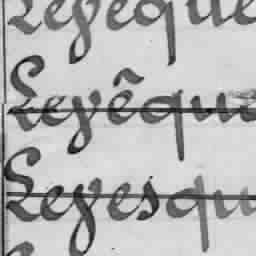 Leveque
Levêque
Levesqu